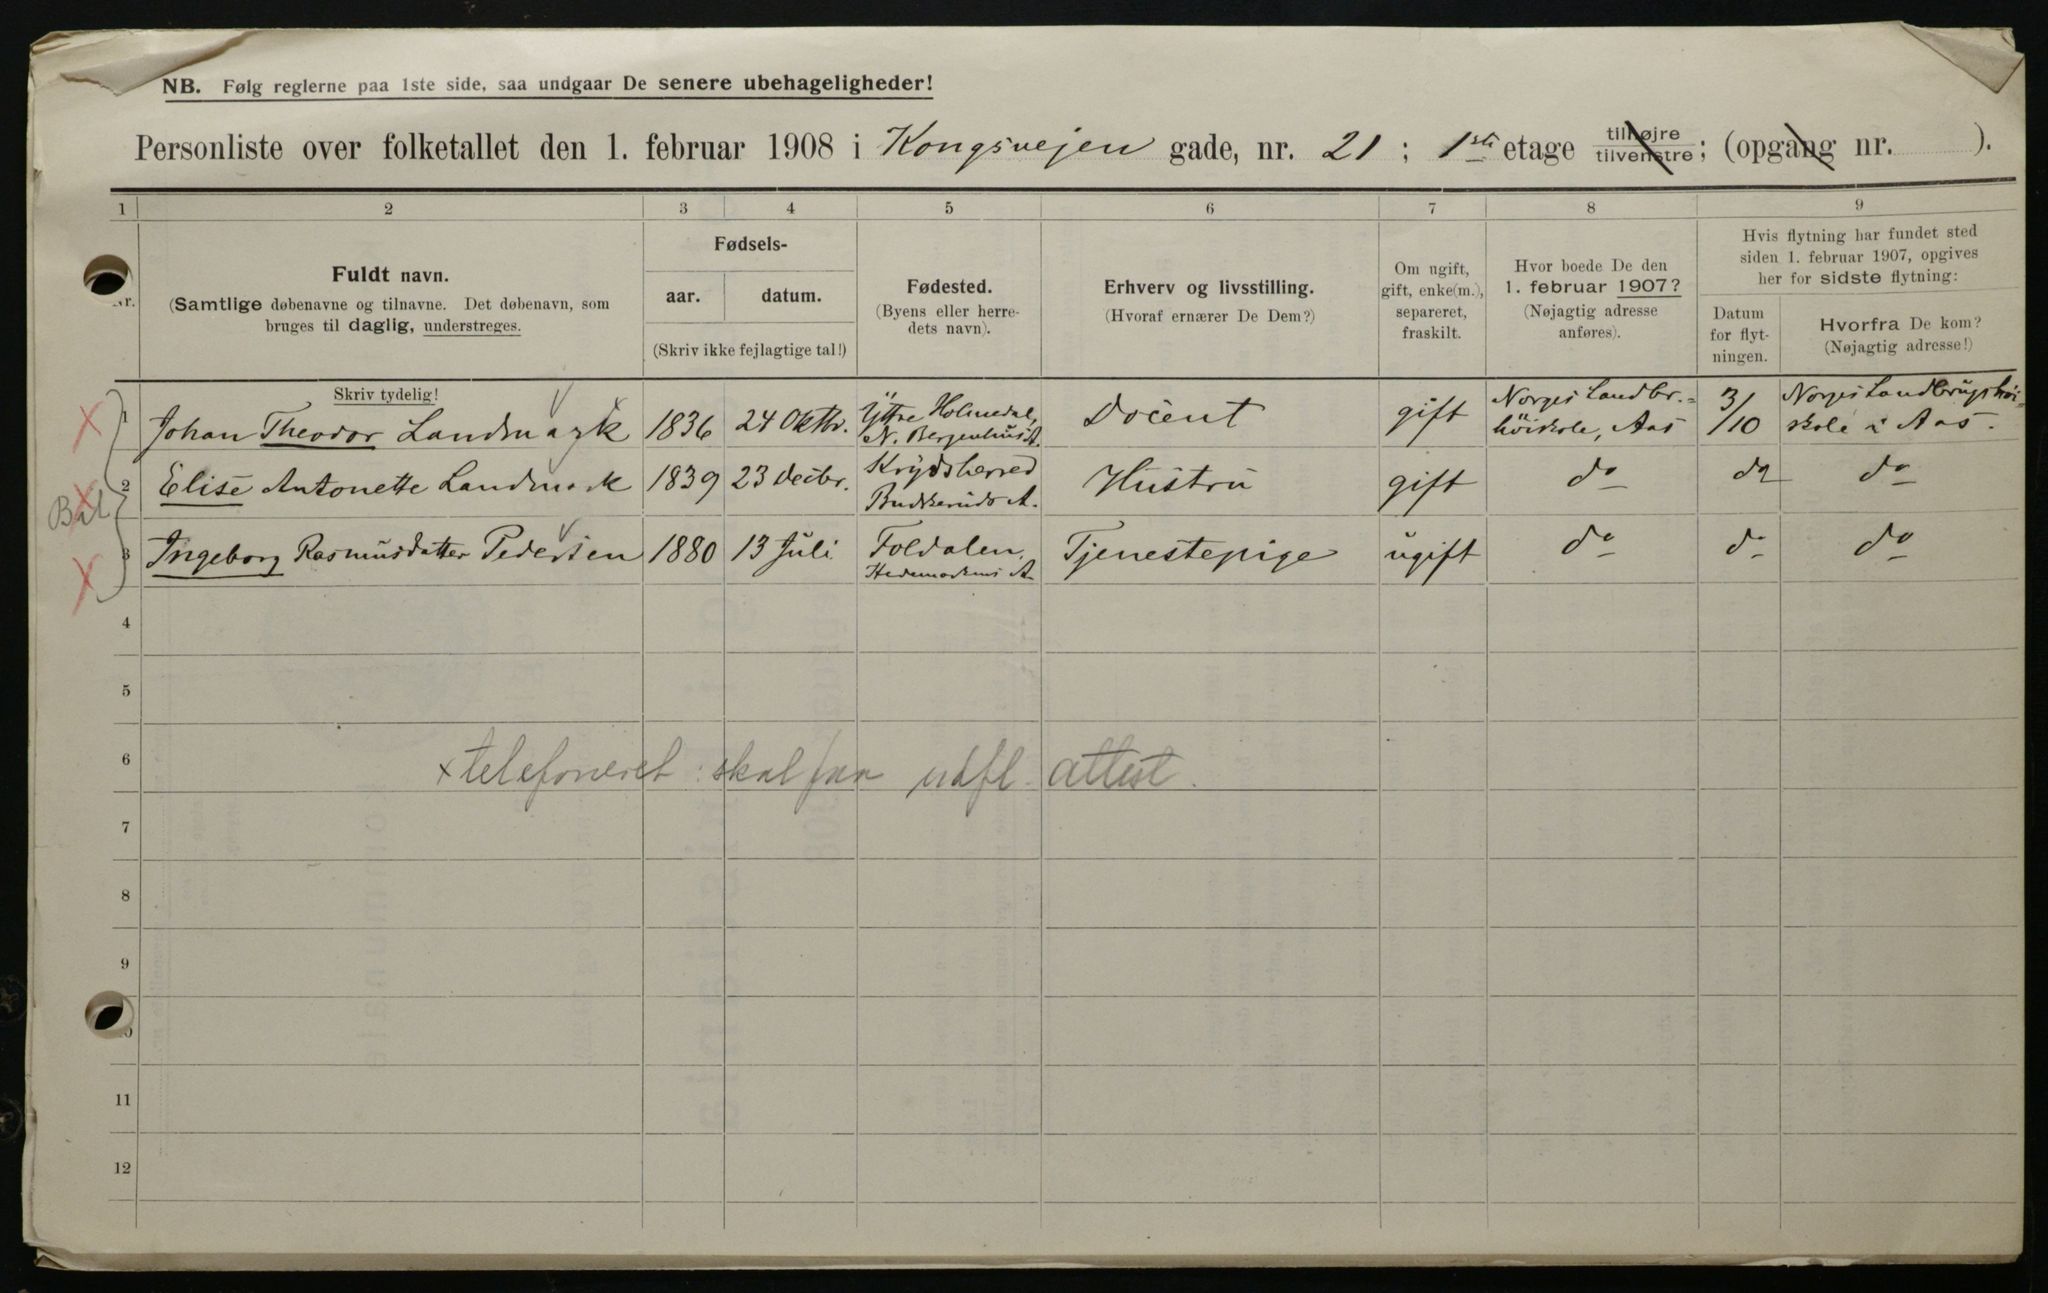 NB. Følg reglerne paa 1ste side, saa undgaar De senere ubehageligheder!
Personliste over folketallet den 1. februar 1908 i Kongsvejen gade, nr. 21 ; 1ste etage tilhøjre tilvenstre ; (opgang nr. ).
1 2 3 4 5 6 7 8 9
Nr.
Fuldt navn.
(Samtlige døbenavne og tilnavne. Det døbenavn, som
bruges til daglig, understreges.
Skriv tydelig!
Fødsels-
aar. datum.
(Skriv ikke fejlagtige tal!)
Fødested.
(Byens eller herre-
dets navn).
Erhverv og livsstilling.
(Hvoraf ernærer De Dem?)
Om ugift,
gift, enke(m.),
separeret,
fraskilt.
Hvor boede De den
1. februar 1907?
(Nøjagtig adresse
anføres).
Hvis flytning har fundet sted
siden 1. februar 1907, opgives
her for sidste flytning:
Datum
for flyt-
ningen.
Hvorfra De kom?
(Nøjagtig adresse!)
1 Johan Theodor Landmark 1836 24 Oktbr. Yttre Holmedal, N. Bergenhus A. Docent gift Norges Landbr.- höiskole, Aas 3/10 Norges Landbrugshöi- skole i Aas.
2 Elise Antonette Landmark 1839 23 Decbr. Krydsherred Buskeruds A. Hustru gift do do do
3 Ingeborg Rasmusdatter Pedersen 1880 13 Juli Foldalen, Hedemarkens A. Tjenestepige ugift do do do
4
5
6
x telefoneret: skal faa udfl. attest.
7
8
9
10
11
12